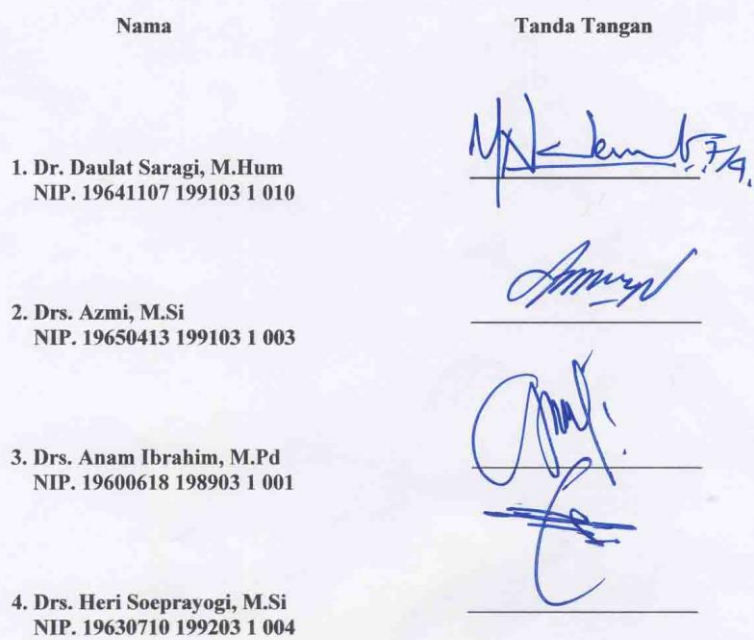 Nama Tanda Tangan
1. Dr. Daulat Saragi, M.Hum
NIP. 19641107 199103 1 010
2. Drs. Azmi, M.Si
NIP. 19650413 199103 1 003
3. Drs. Anam Ibrahim, M.Pd
NIP. 19600618 198903 1 001
4. Drs. Heri Soeprayogi, M.Si
NIP. 19630710 199203 1 004